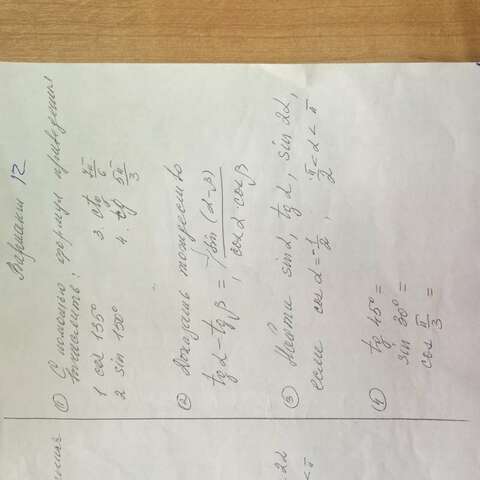 Вариант 12
① С помощью формул приведения
вычислить:
1 cos 135° 3. ctg 7π/6
2 sin 150° 4. tg 5π/3
② Доказать тождество
tg α - tg β = sin (α-β) / cos α · cos β
③ Найти sin α, tg α, sin 2α,
если cos α = -1/2, π/2 < α < π
④ tg 45° =
sin 30° =
cos π/3 =
2α